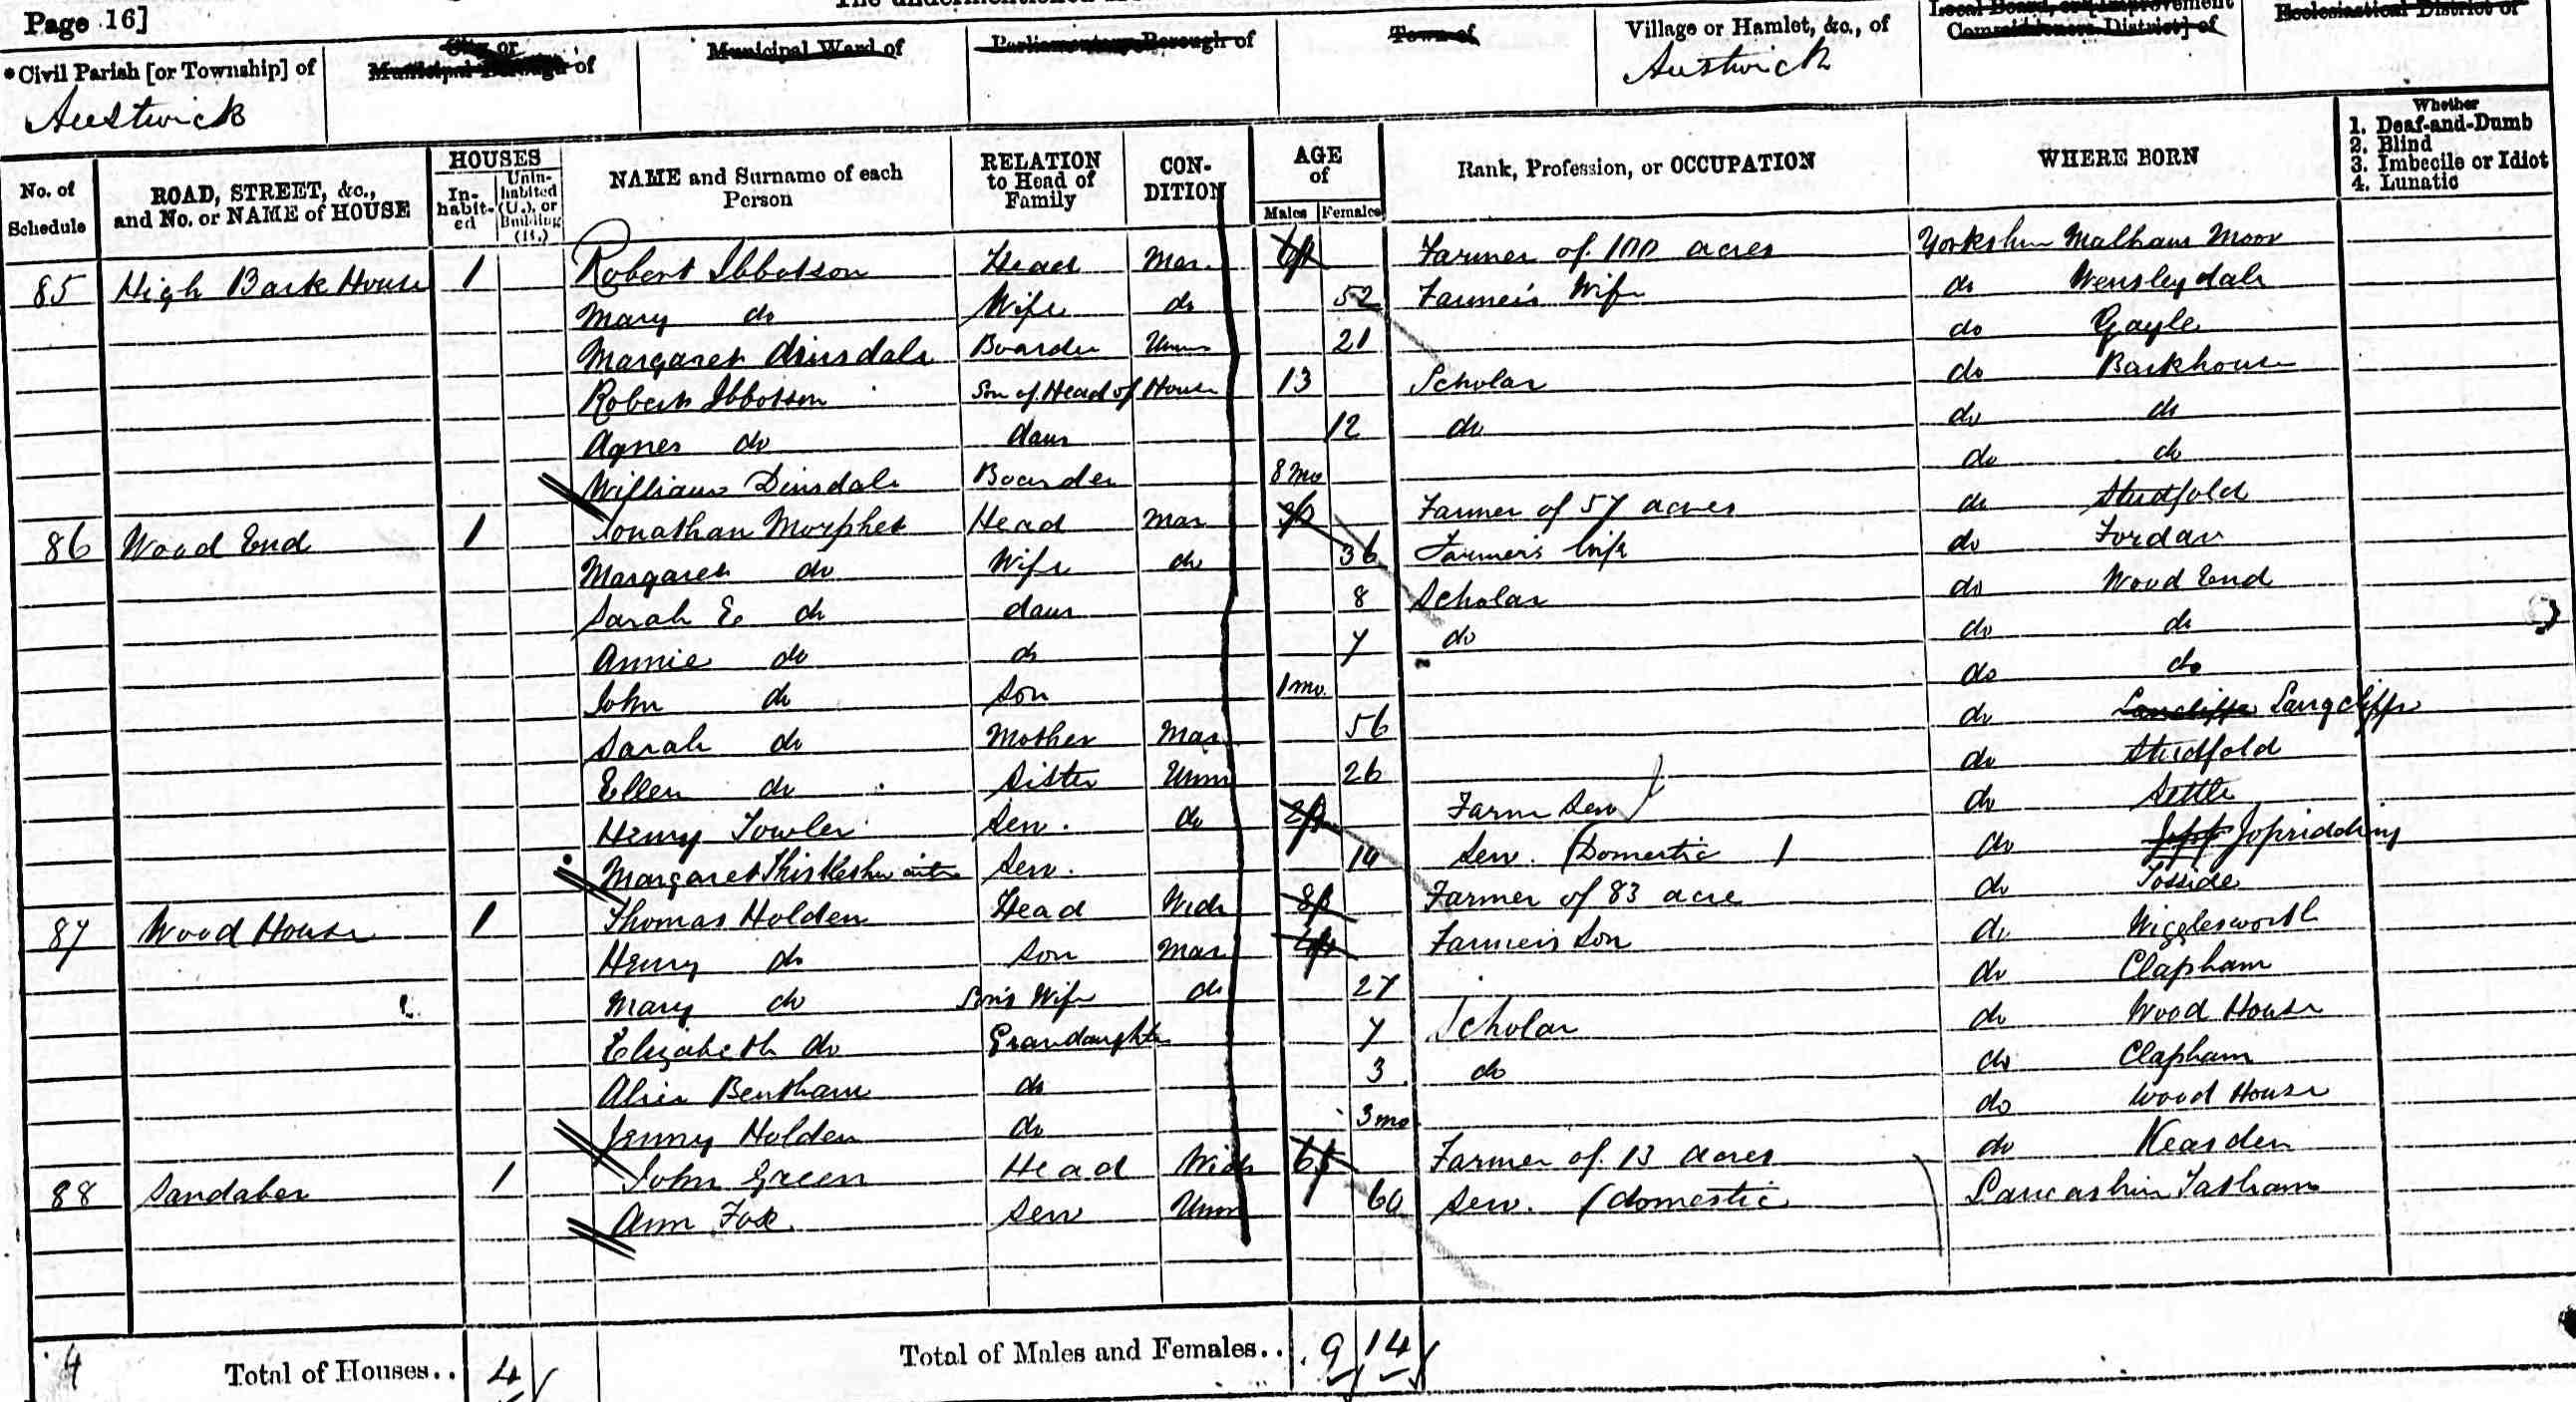 Page 16]
*Civil Parish [or Township] of Austwick
City or Municipal Borough of
Municipal Ward of
Parliamentary Borough of
Town of
Village or Hamlet, &c., of Austwick
Local Board, or [Improvement Commissioners District] of
Ecclesiastical District of
No. of Schedule
ROAD, STREET, &c., and No. or NAME of HOUSE
HOUSES
In-habit-ed
Unin-habited (U.), or Building (B.)
NAME and Surname of each Person
RELATION to Head of Family
CON-DITION
AGE of
Males Females
Rank, Profession, or OCCUPATION
WHERE BORN
Whether
1. Deaf-and-Dumb
2. Blind
3. Imbecile or Idiot
4. Lunatic
85 High Bark House 1 Robert Ibbotson Head Mar. Farmer of 100 acres Yorkshire Malham Moor
Mary do Wife do 52 Farmer's Wife do Wensleydale
Margaret Dinsdale Boarder Unm 21 do Gayle
Robert Ibbotson Son of Head of House 13 Scholar do Barkhouse
Agnes do daur 12 do do do
William Dinsdale Boarder 8 mo do do
86 Wood End 1 Jonathan Morphet Head Mar Farmer of 57 acres do Studfold
Margaret do Wife do 36 Farmer's Wife do Fordar
Sarah E do daur 8 Scholar do Wood End
Annie do do 7 do do do
John do Son 1 mo. do do
Sarah do Mother Mar 56 do Lancliffe Langcliffe
Ellen do Sister Unm 26 do Studfold
Henry Towler Serv. do Farm Serv do Settle
Margaret Thistlethwaite Serv. 14 Serv. (Domestic do Jopridding
87 Wood House 1 Thomas Holden Head Widr Farmer of 83 acre do Tosside
Henry do Son Mar Farmer's Son do Wigglesworth
Mary do Son's Wife do 27 do Clapham
Elizabeth do Grandaughter 7 Scholar do Wood House
Alice Bentham do 3 do do Clapham
Jenny Holden do 3 mo do Wood House
88 Sandaber 1 John Green Head Widr 65 Farmer of 13 acres do Keasden
Ann Fox Serv Unm 60 Serv. (domestic Lancashire Tatham
4 Total of Houses.. 4
Total of Males and Females.. 9 14